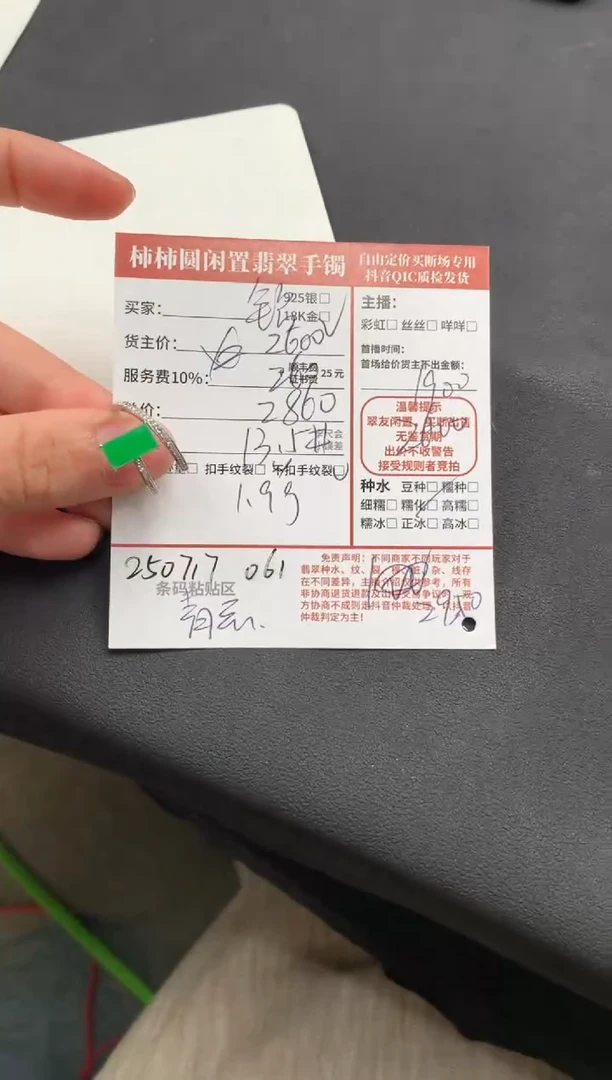 柿柿圆闲置翡翠手镯
自由定价买断场专用
抖音QIC质检发货
买家：
925银□
18K金□
货主价： 2600
服务费10%： 25元
价： 2860
13.5
扣手纹裂□
1.9g
主播：
彩虹□ 丝丝□ 咩咩□
首播时间：
首场给价货主不出金额：
1900
温馨提示
翠友闲置
无鉴赏期
出价不收警告
接受规则者竞拍
种水 豆种□ 糯种□
细糯□ 糯化□ 高糯□
糯冰□ 正冰□ 高冰□
250717 061
条码粘贴区
免责声明：不同商家不同玩家对于
翡翠种水、纹、裂
在不同差异，主播介绍仅供参考，所有
非协商退货退款及
方协商不成则走抖音仲裁处场
仲裁判定为主！
2950